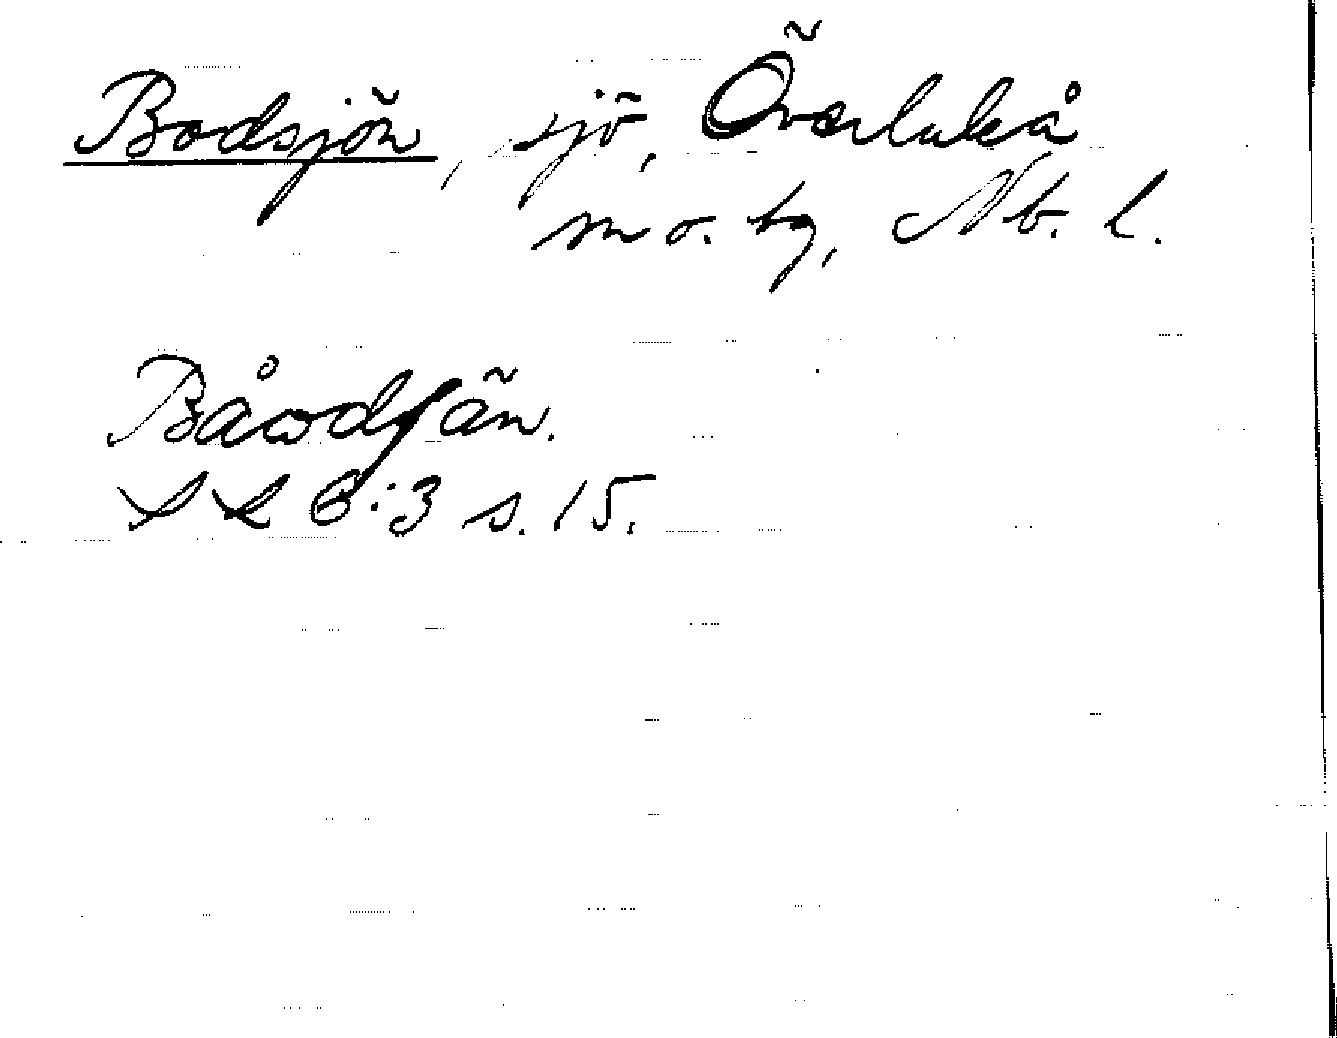 Bodsjön, sjö, Överluleå
s n o. tg, Nb. l.
Båwdſån.
S L 6:3 s. 15.